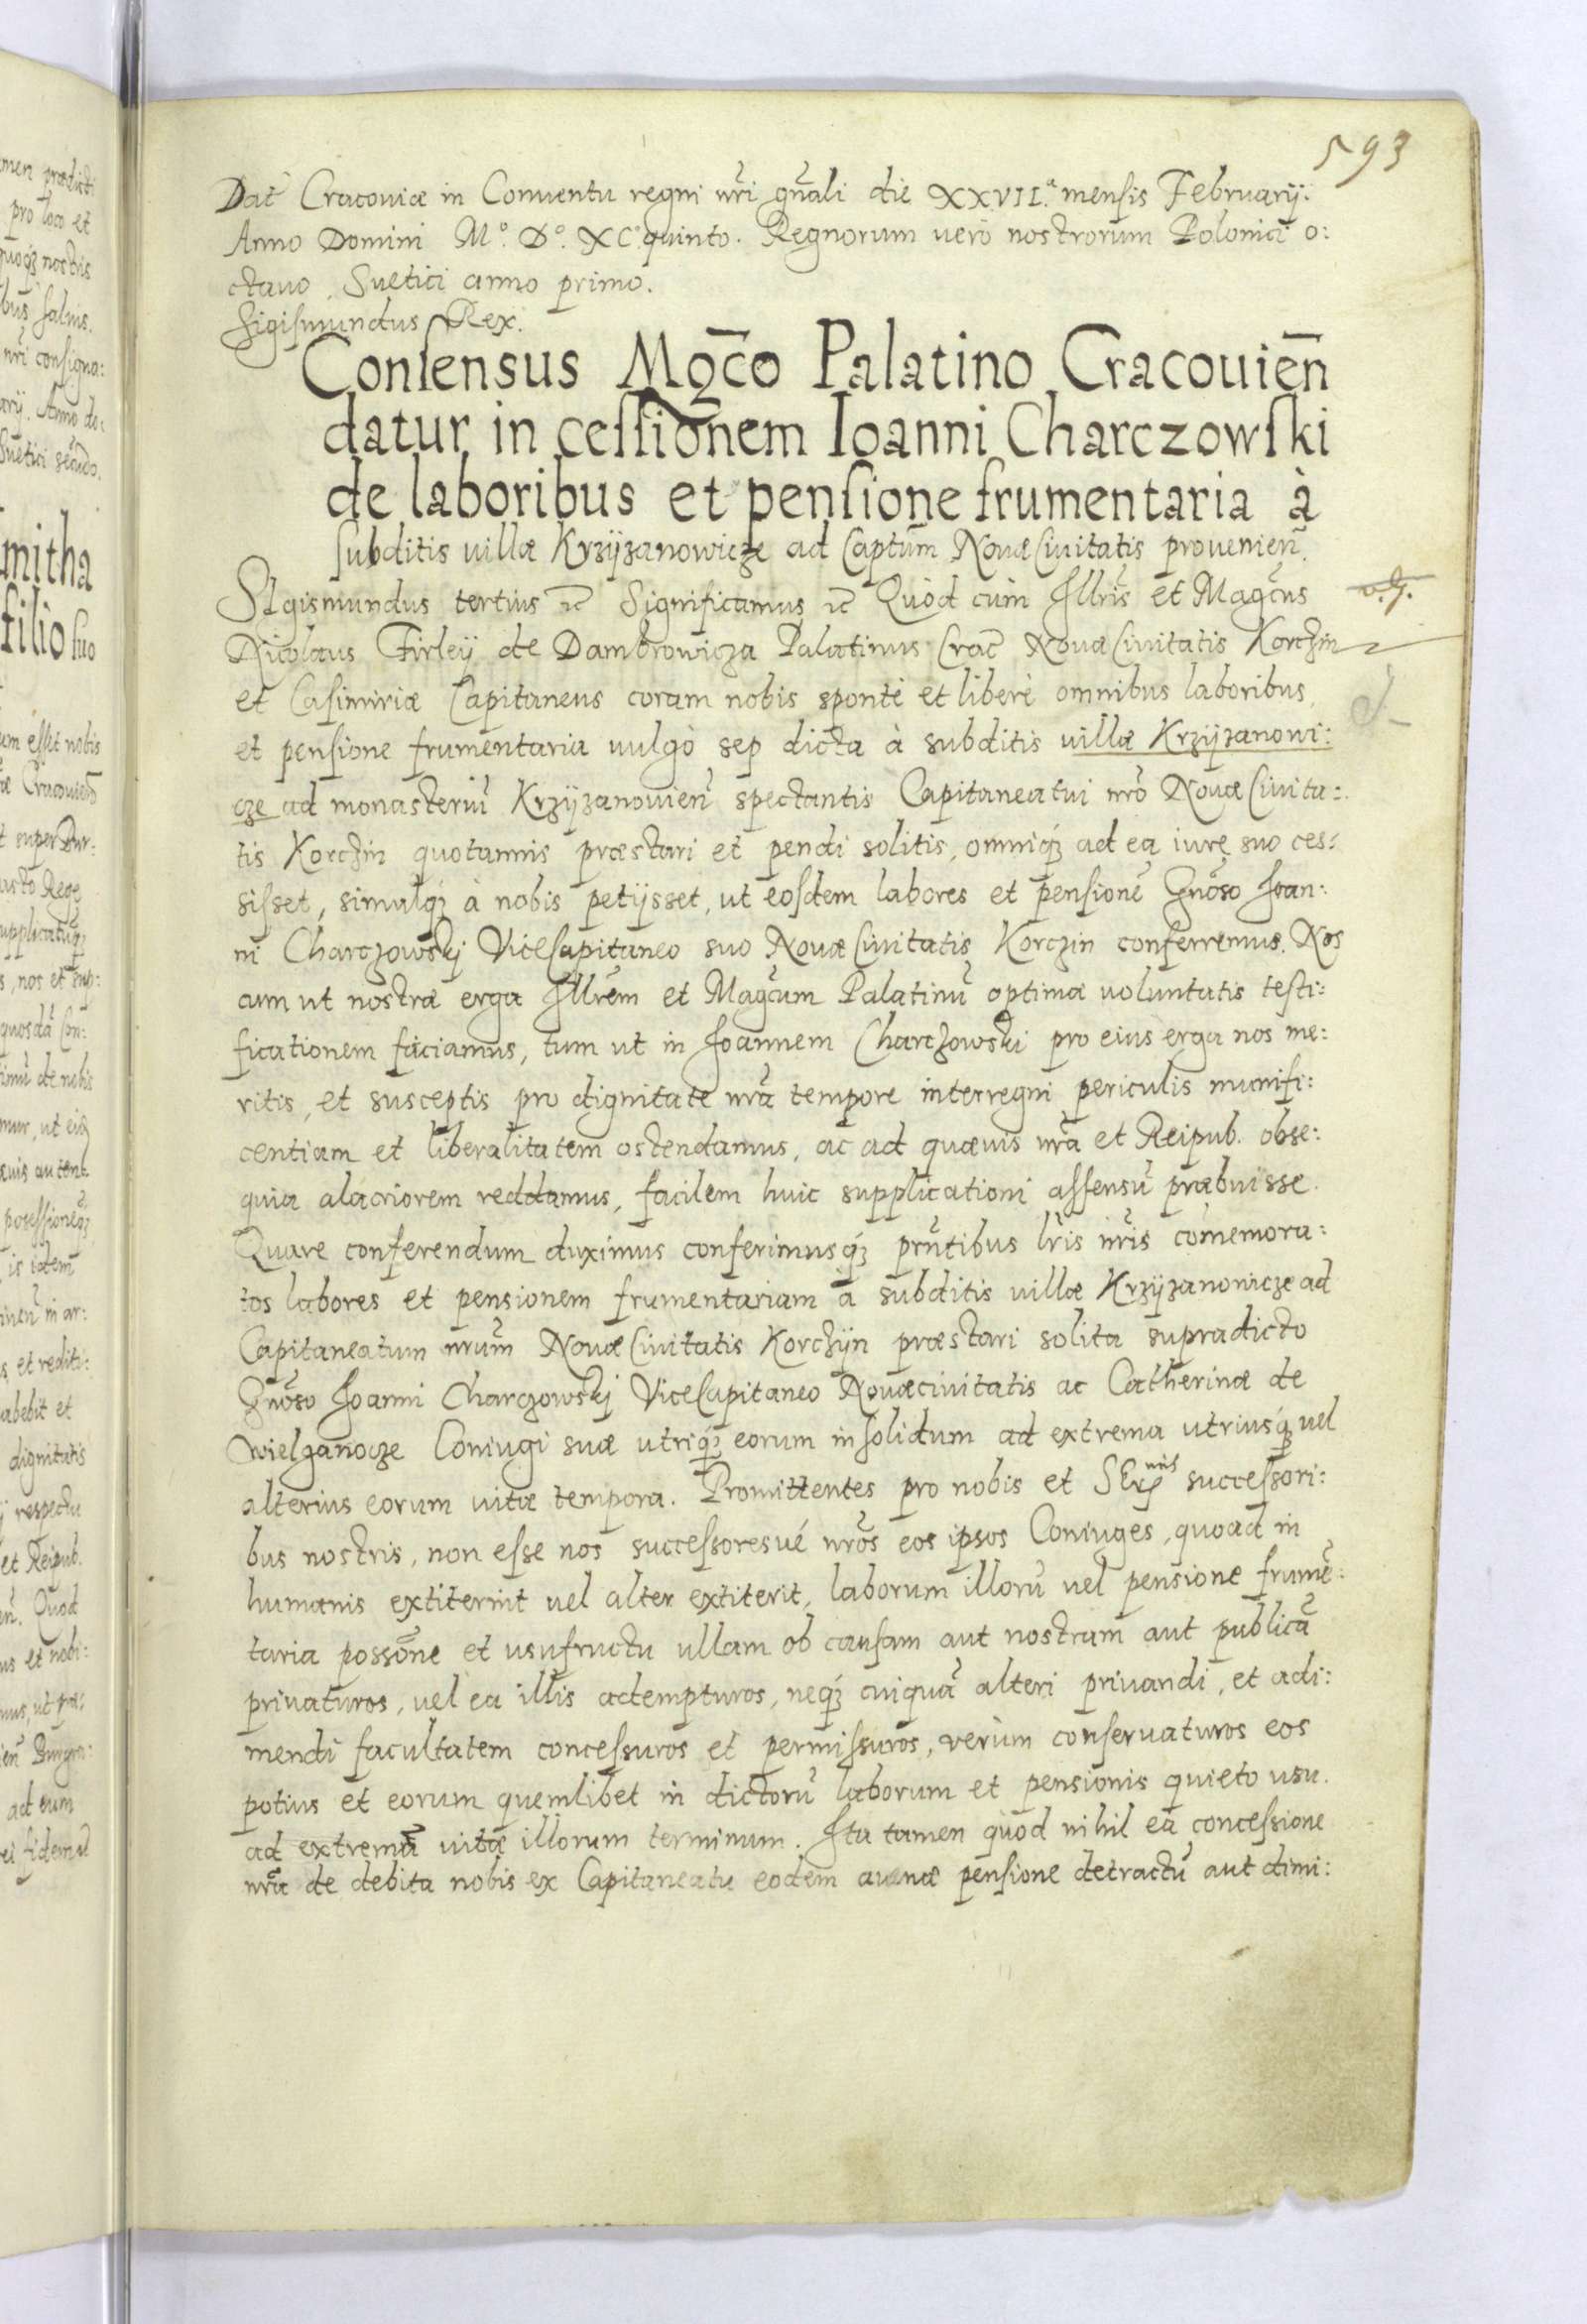 593
Dat̃ Cracouiæ in Conuentu regni nr̃i gñali die XXVII.ª mensis Februarij.
Anno Domini M.º D.º XC.º quinto. Regnorum uerò nostrorum Polonici o:
ctauo, Suetici anno primo.
Sigismundus Rex.
Consensus Mgc̃o Palatino Cracouien̄
datur in cessionem Ioanni Charczowski
de laboribus et pensione frumentaria à
subditis uillæ Krzÿzanowicze ad Captum̃ Nouæ Ciuitatis prouenien̄.
SIgismundus tertius ꝛc̃ Significamus ꝛc̃ Quòd cùm Illris̃ et Magc̃us
Nicolaus Firleÿ de Dambrowicza Palatinus Crac̃ Nouæ Ciuitatis Korczin
et Casimiriæ Capitaneus coram nobis spontè et liberè omnibus laboribus,
et pensione frumentaria uulgò sep dicta à subditis uillæ Krzÿzanowi:
cze ad monasteriũ Krzÿzanouien̄ spectantis Capitaneatui nrõ Nouæ Ciuita:
tis Korczin quotannis præstari et pendi solitis, omniq́ꝫ ad ea iure suo ces:
sisset, simulq́ꝫ à nobis petijsset, ut eosdem labores et pensionẽ Gnõso Ioan:
ni Charczowskj ViceCapitaneo suo Nouæ Ciuitatis Korczin conferremus. Nos
cum ut nostræ erga Illrẽm et Magc̃um Palatinũ optimæ uoluntatis testi:
ficationem faciamus, tum ut in Joannem Charczowski pro eius erga nos me:
ritis, et susceptis pro dignitate nrã tempore interregni periculis munifi:
centiam et liberalitatem ostendamus, ac ad quæuis nrã et Reipub. obse:
quia alacriorem reddamus, facilem huic supplicationi assensũ præbuisse.
Quare conferendum duximus conferimusq́ꝫ prñtibus lr̃is nr̃is com̃emora:
tos labores et pensionem frumentariam à subditis uillæ Krzÿzanowicze ad
Capitaneatum nrum̃ Nouæ Ciuitatis Korczÿn præstari solita supradicto
Gnõso Joanni Charczowskj ViceCapitaneo Nouæciuitatis ac Catherinæ de
Wielganocze Coniugi suæ utriq́ꝫ eorum in solidum ad extrema utriusq́ꝫ uel
alterius eorum uitæ tempora. Promittentes pro nobis et SEr̃mis successori:
bus nostris, non esse nos successoresué nrõs eos ipsos Coniuges, quoad in
humanis extiterint uel alter extiterit, laborum illorũ uel pensione frumẽ:
taria possõne et usufructu ullam ob causam aut nostram aut publicã
priuaturos, uel ea illis adempturos, neq́ꝫ cuiquã alteri priuandi, et adi:
mendi facultatem concessuros et permissuros, verùm conseruaturos eos
potius et eorum quemlibet in dictorũ laborum et pensionis quieto usu.
ad extremã uitæ illorum terminum. Ita tamen quòd nihil eà concessione
nrã de debita nobis ex Capitaneatu eodem auenæ pensione detractũ aut dimi: